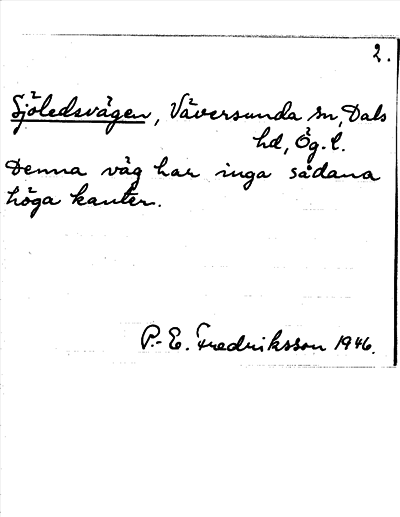 2.
Sjöledsvägen, Väversunda sn, Dals
hd, Ög. l.
Denna väg har inga sådana
höga kanter.
P.-E. Fredriksson 1946.